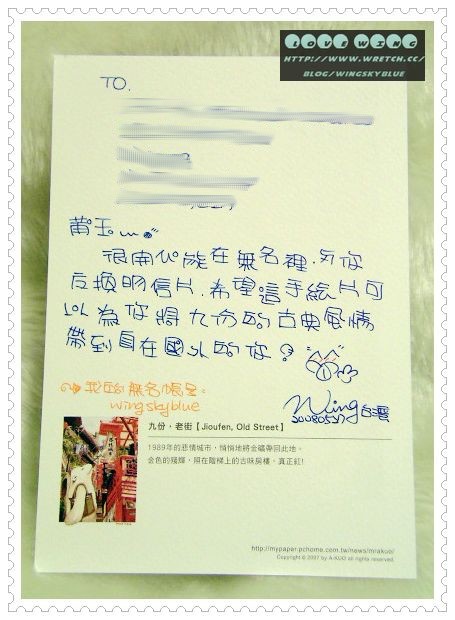 LOVE WING
HTTP://WWW.WRETCH.CC/
BLOG/WINGSKYBLUE
TO.
很開心能在無名裡.另你
交換明信片.希望這手繪片可
以為你將九份的古典風情
帶到身在國外的你?
我的無名帳號:
wingskyblue
Wing台灣
20080527
九份,老街【Jioufen, Old Street】
1989年的悲情城市,悄悄地將金礦帶回此地。
金色的殘輝,照在階梯上的古味房樓,真正紅!
http://mypaper.pchome.com.tw/news/mrakuo/
Copyright © 2007 by A-KUO all rights reserved.